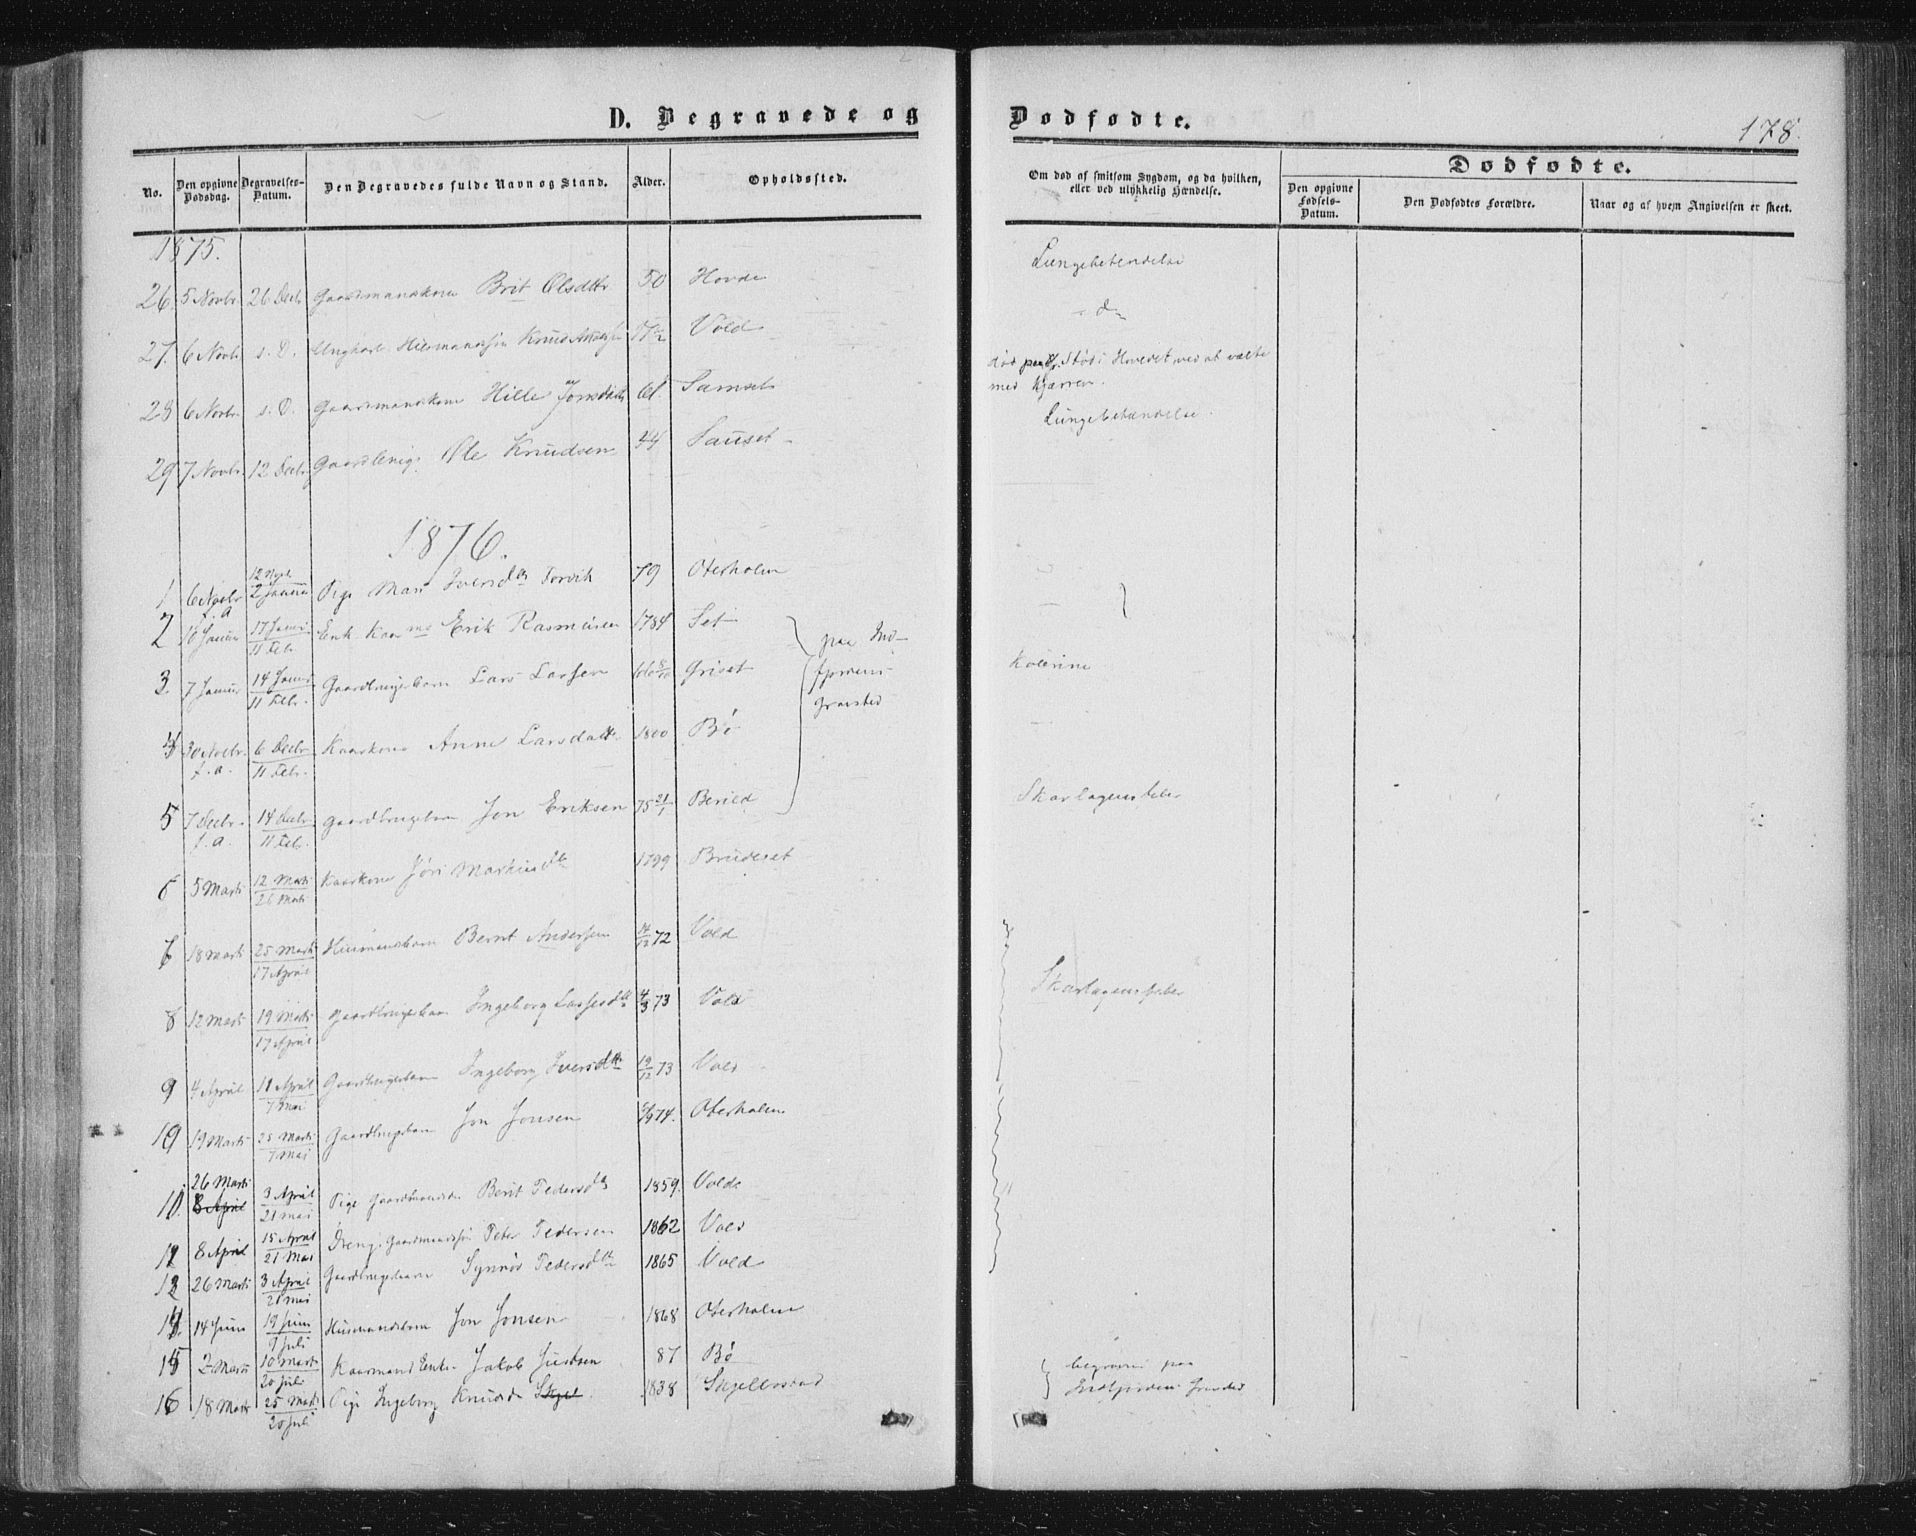 D. Begravede og Dødfødte.
178.
No.
Den opgivne Dødsdag.
Begravelses-Datum.
Den Begravedes fulde Navn og Stand.
Alder.
Opholdssted.
Om død af smitsom Sygdom, og da hvilken, eller ved ulykkelig Hændelse.
Dødfødte.
Den opgivne Fødsels-Datum.
Den Dødfødtes Forældre.
Naar og af hvem Angivelsen er skeet.
1875.
26. 5 Novbr 26 Decb Gaardmandskone Brit Olsdttr 50 Hovde Lungebetendelse
27. 6 Novbr s. D. Ungkarl Knud Vold
28 6 Novbr s. D. Gaardmandskone Hille Jonsdatter 61. Samset død paa Stød i Hovedet ved at vælte med Kjærren.
29 7 Novbr. 12 Decbr Ole Knudsen 44 Sauset Lungebetændelse.
1876.
1 6 Novbr f. a 12 Novb. 2 Januar Pige Mari Iversdtr Torvik 79 Oterholm
2 10 Januar 17 Januar 11 Feb. Enk. Kaarmd Erik Rasmusen 1784 Set
paa Ind-fjordens Gravsted
3. 7 Januar 14 Januar 11 Febr. Gaardbrugerbarn Lars Larsen Griset Kolerine
4 30 Novbr. f. a. 6 Decbr 11 Febr. Kaarkone Anne Larsdatter 1800 Bø
5 7 Decbr. f. a. 14 Decbr 11 Feb. Gaardbrugerbarn Jon Eriksen 75 21/1 Berild Skarlagensfeber
6 5 Marts 12 Marts 26 Marts Kaarkone Jøri 1799 Brudeset
18 Marts 25 Marts 17 April Husmandsbarn Bernt Andersen 14/12 72 Vold
8 12 Marts 19 Marts 17 April Gaardbrugerbarn Ingeborg Lassesdtr 4/3 73 Vold Skarlagensfeber
9 4 April 11 April 7 Mai Gaardbrugerbarn Ingeborg Iversdtr 19/12 73 Vold
10 19 Marts 25 Marts 7 Mai Gaardbrugerbarn Jon Jonsen 74. Oterholm
26 Marts 8 April 3 April 21 Mai Pige Berit Pedersdtr 1859. Volde
8 April 15 April 21 Mai Dreng. Peter Pedersen 1862 Vold
26 Marts 3 April 21 Mai Gaardbrugerbarn Synnøv Pedersdtr 1865 Vold
14 Juni 19 Juni 9 Juli Husmandsbarn Jon Jonsen 1868 Oterholm
15 2 Marts 10 Marts 20 Juli Kaarmand Enke. Jakob 87 Bø begraven paa
16 18 Marts 25 Marts 20 Juli Pige Ingeborg Knudsd 1838 Skjellestad Indfjordens Gravsted